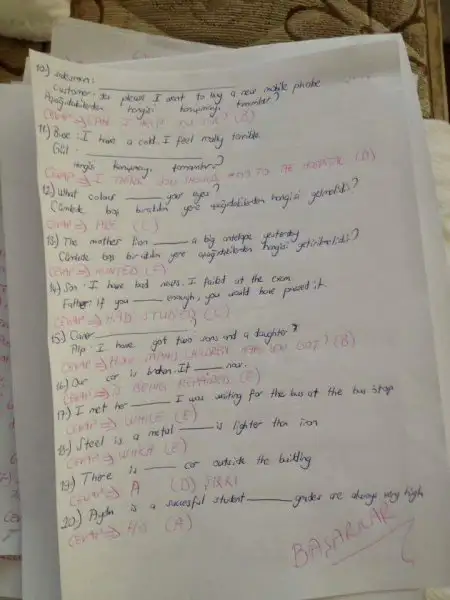 10.) Salesman: ___
Customer: Yes please I want to buy a new mobile phone
Aşağıdakilerden hangisi konuşmayı tamamlar?
CEVAP => CAN I HELP YOU SIR? (B)
11.) Bue: I have a cold. I feel really terrible.
Gül: ___
hangisi konuşmayı tamamlar?
CEVAP => I THINK YOU SHOULD GO TO THE HOSPITAL (D)
12.) What colour ___ your eyes?
Cümlede boş bırakılan yere aşağıdakilerden hangisi gelmelidir?
CEVAP => ARE (C)
13.) The mother lion ___ a big antelope yesterday
Cümlede boş bırakılan yere aşağıdakilerden hangisi getirilmelidir?
CEVAP => HUNTED (E)
14.) Son: I have bad news. I failed at the exam.
Father: If you ___ enough, you would have passed it.
CEVAP => HAD STUDIED (C)
15.) Clair: ___
Pilip: I have got two sons and a daughter?
CEVAP => HOW MANY CHILDREN HAVE YOU GOT? (B)
16.) Our car is broken. It ___ now.
CEVAP => IS BEING REPAIRED (E)
17.) I met her ___ I was waiting for the bus at the bus stop
CEVAP => WHILE (E)
18.) Steel is a metal ___ is lighter than iron
CEVAP => WHICH (E)
19.) There is ___ car outside the building
CEVAP => A (D) ŞIKKI
20.) Aydın is a succesful student ___ grades are always very high
CEVAP => HIS (A)
BAŞARILAR